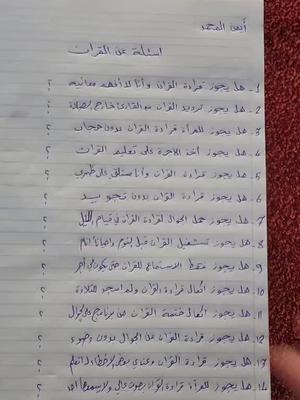 أيمن المحمد
اسئلة عن القران
1- هل يجوز قراءة القران وأنا لا أفهم معانيه ؟
2- هل يجوز ترديد القران مع القارئ خارج الصلاة ؟
3- هل يجوز للمرأة قراءة القران بدون حجاب ؟
4- هل يجوز أخذ الاجرة على تعليم القران ؟
5- هل يجوز قراءة القران وأنا مستلقي على ظهري ؟
6- هل يجوز قراءة القران بدون تجويد ؟
7- هل يجوز حمل الجوال لقراءة القران في قيام الليل ؟
8- هل يجوز تشغيل القران قبل النوم واحيانا انام ؟
9- هل يجوز فقط الاستماع للقران حتى يكون لي أجر ؟
10- هل يجوز اكمال قراءة القران ولم اسجد للتلاوة ؟
11- هل يجوز اكمال ختمة القران من برنامج على الجوال ؟
12- هل يجوز قراءة القران من الجوال بدون وضوء ؟
13- هل يجوز قراءة القران وعندي بعض الاخطاء لا اتعلم ؟
14- هل يجوز للمرأة قراءة القران بصوت عالي